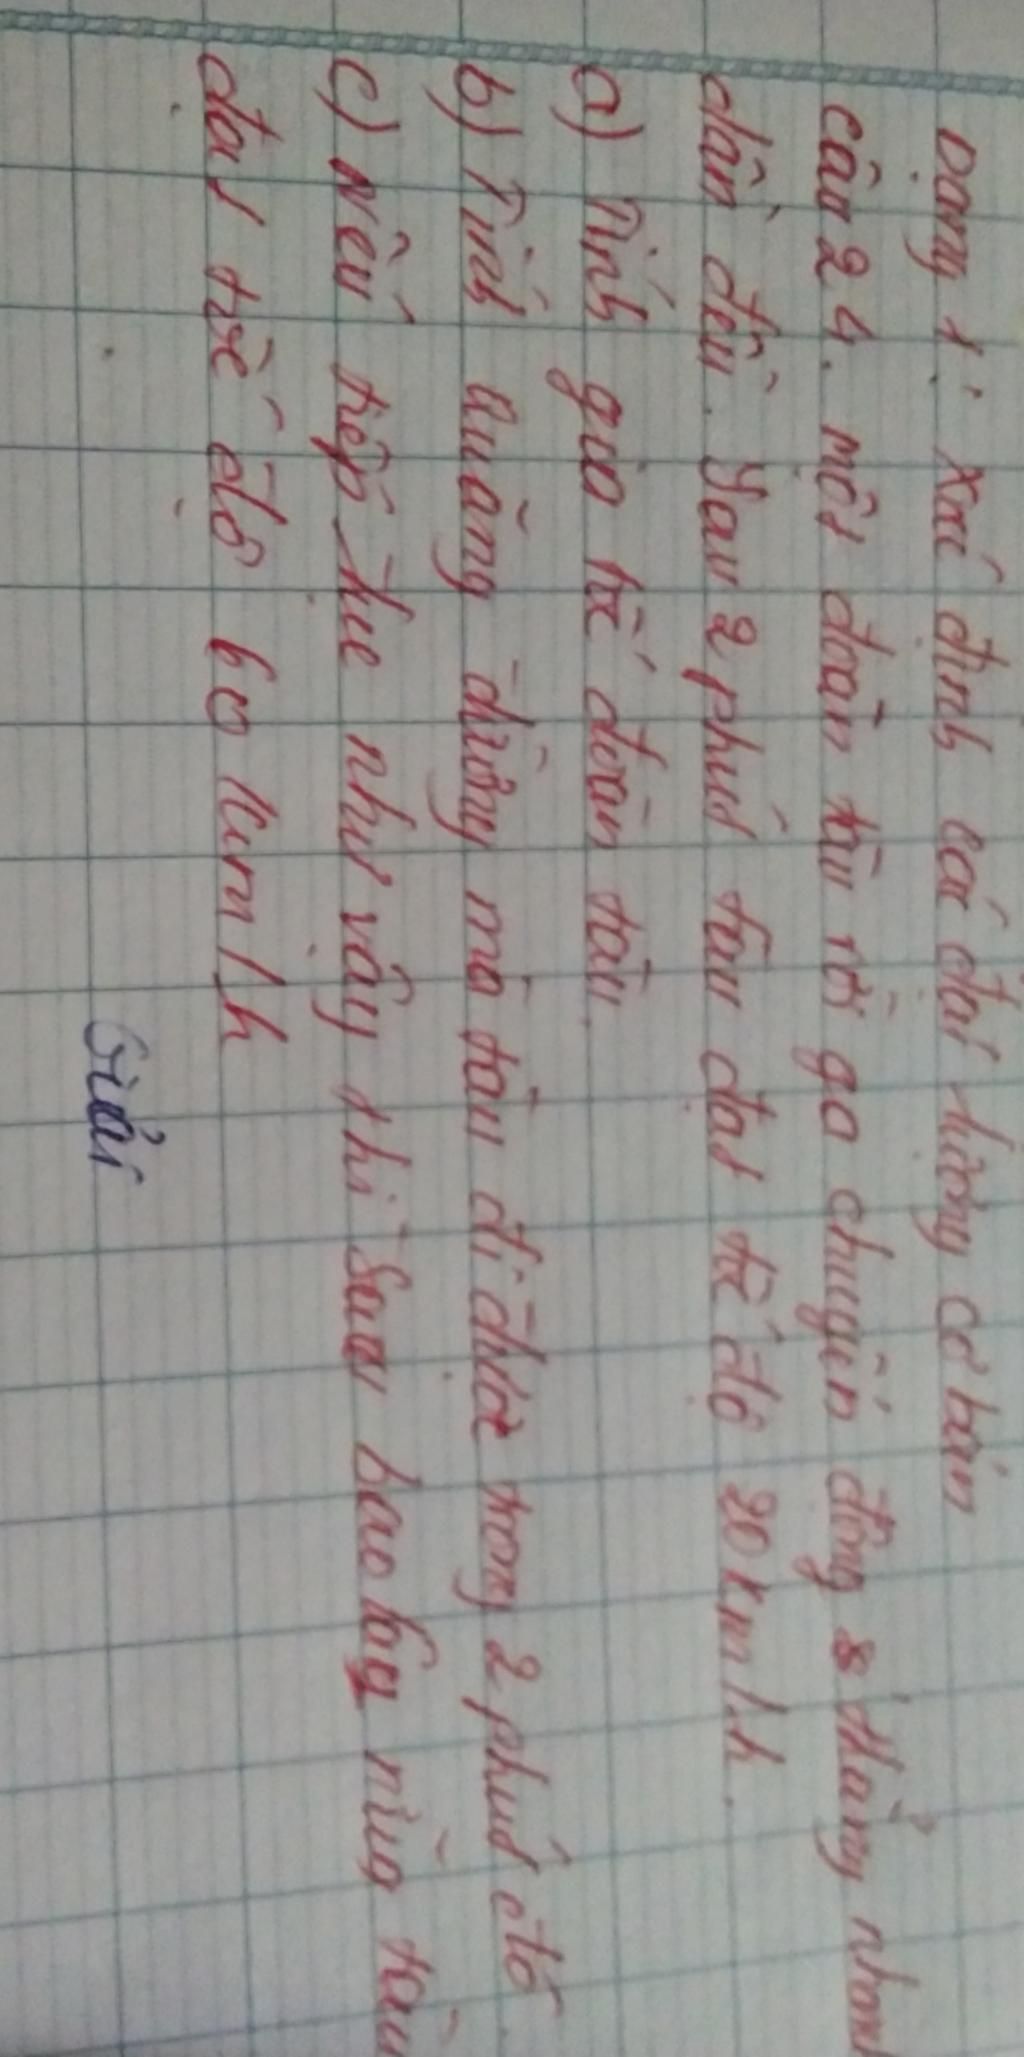 Dạng 1: Xác định các đại lượng cơ bản
câu 24. một đoàn tàu rời ga chuyển động thẳng nhanh
dần đều. Sau 2 phút tàu đạt tốc độ 20 km/h.
a) Tính gia tốc đoàn tàu.
b) Tính quãng đường mà tàu đi được trong 2 phút đó.
c) Nếu tiếp tục như vậy thì sau bao lâu nữa tàu
đạt tốc độ 60 km/h
Giải